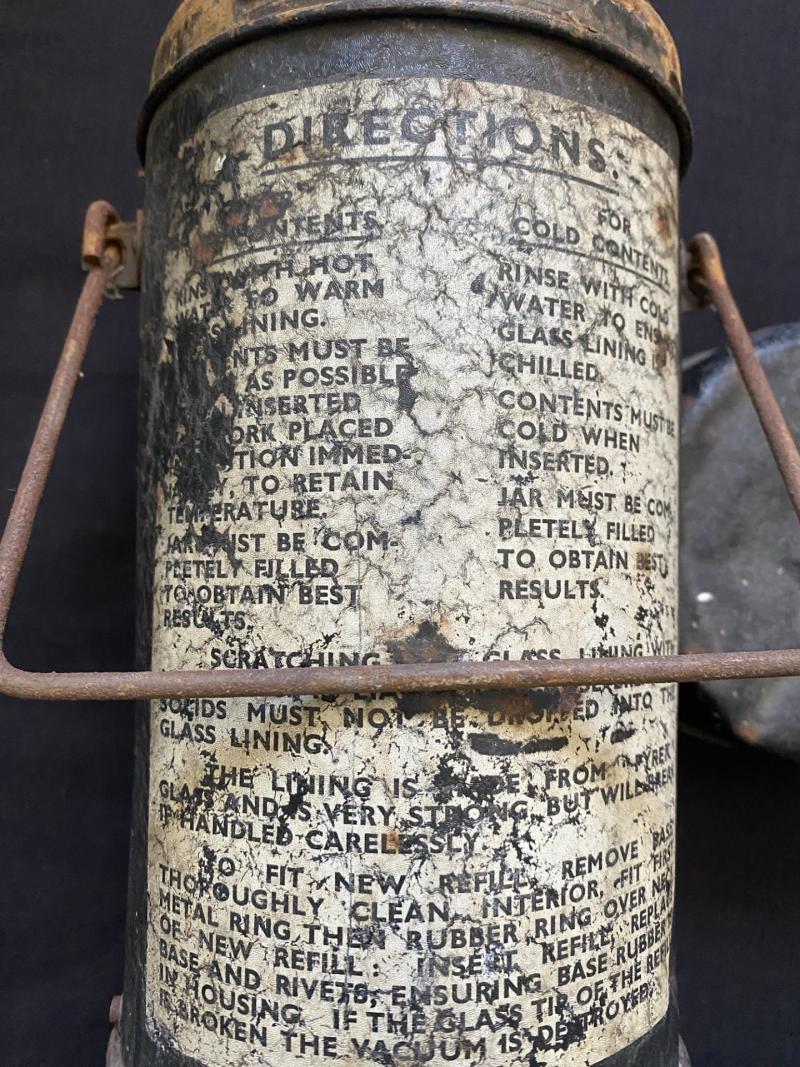 DIRECTIONS.
CONTENTS
RINSE WITH HOT
WATER TO WARM
LINING.
MUST BE
AS POSSIBLE
INSERTED
PLACED
IMMED-
TO RETAIN
TEMPERATURE.
JAR MUST BE COM-
PLETELY FILLED
TO OBTAIN BEST
RESULTS.
FOR
COLD CONTENTS
RINSE WITH COLD
WATER TO
GLASS LINING
CHILLED.
CONTENTS MUST BE
COLD WHEN
INSERTED.
JAR MUST BE COM-
PLETELY FILLED
TO OBTAIN BEST
RESULTS.
SCRATCHING GLASS LINING WITH
SOLIDS MUST NOT BE DROPPED INTO THE
GLASS LINING.
THE LINING IS FROM "PYREX"
GLASS AND IS VERY STRONG, BUT WILL
IF HANDLED CARELESSLY.
TO FIT NEW REFILL, REMOVE BASE
THOROUGHLY CLEAN INTERIOR, FIT FIRST
METAL RING, THEN RUBBER RING OVER
OF NEW REFILL: INSERT REFILL, REPLACE
BASE AND RIVETS, ENSURING BASE RUBBER
IN HOUSING. IF THE GLASS TIP OF THE REFILL
IS BROKEN THE VACUUM IS DESTROYED.